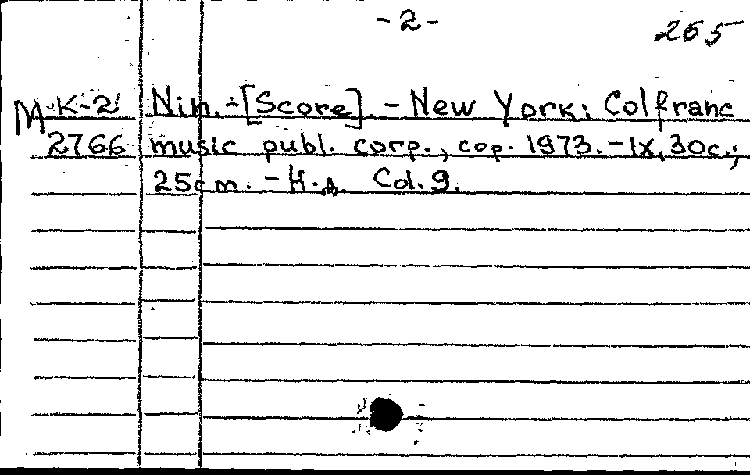 -2-
265
М K-2 Nin. - [Score]. - New York: Colfranc
2766 music publ. corp., cop. 1973. - IX, 30c.;
25cm. - Н.д. Col. 9.